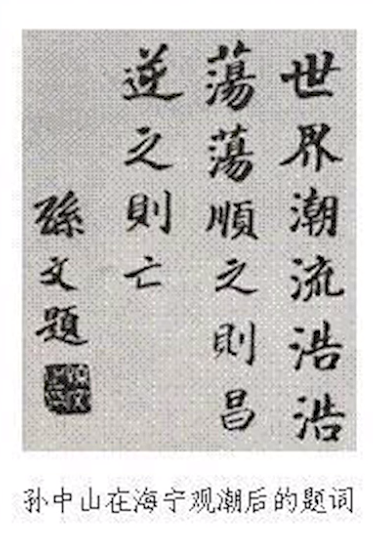 世界潮流浩浩
蕩蕩順之則昌
逆之則亡
孫文題
孙中山在海宁观潮后的题词